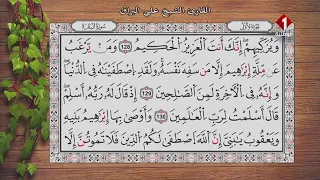 القارئ الشيخ علي البراق
وَيُزَكِّيهِمْ إِنَّكَ أَنتَ الْعَزِيزُ الْحَكِيمُ 128 وَمَنْ يَرْغَبُ
عَن مِّلَّةِ إِبْرَاهِيمَ إِلَّا مَن سَفِهَ نَفْسَهُ وَلَقَدِ اصْطَفَيْنَاهُ فِي الدُّنْيَا
وَإِنَّهُ فِي الْآخِرَةِ لَمِنَ الصَّالِحِينَ 129 إِذْ قَالَ لَهُ رَبُّهُ أَسْلِمْ
قَالَ أَسْلَمْتُ لِرَبِّ الْعَالَمِينَ 130 وَأَوْصَى بِهَا إِبْرَاهِيمُ بَنِيهِ
وَيَعْقُوبُ يَابَنِيَّ إِنَّ اللَّهَ اصْطَفَى لَكُمُ الدِّينَ فَلَا تَمُوتُنَّ إِلَّا